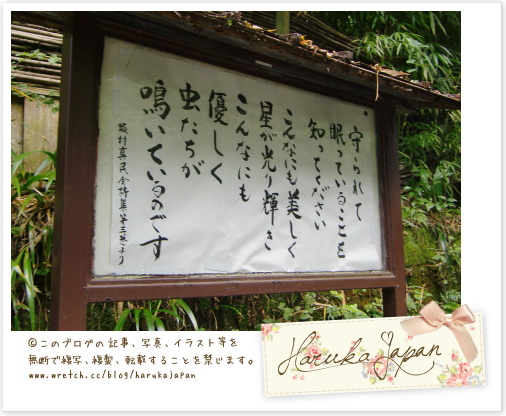 守られて
眠っていることを
知ってください
こんなにも美しく
星が光り輝き
こんなにも
優しく
虫たちが
鳴いているのです
坂村真民全詩集第三巻より
©このブログの記事、写真、イラスト等を
無断で複写、複製、転載することを禁じます。
www.wretch.cc/blog/harukajapan
Haruka Japan